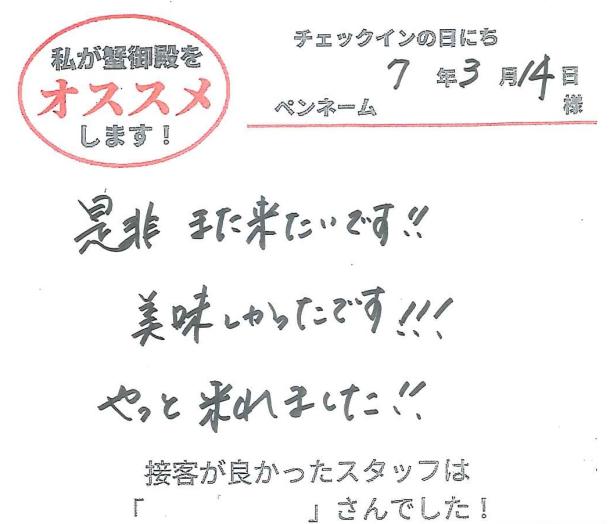 私が蟹御殿を
オススメ
します!
チェックインの日にち
7年3月14日
ペンネーム 様
是非 また来たいです!!
美味しかったです!!!
やっと来れました!!
接客が良かったスタッフは
「 」さんでした!